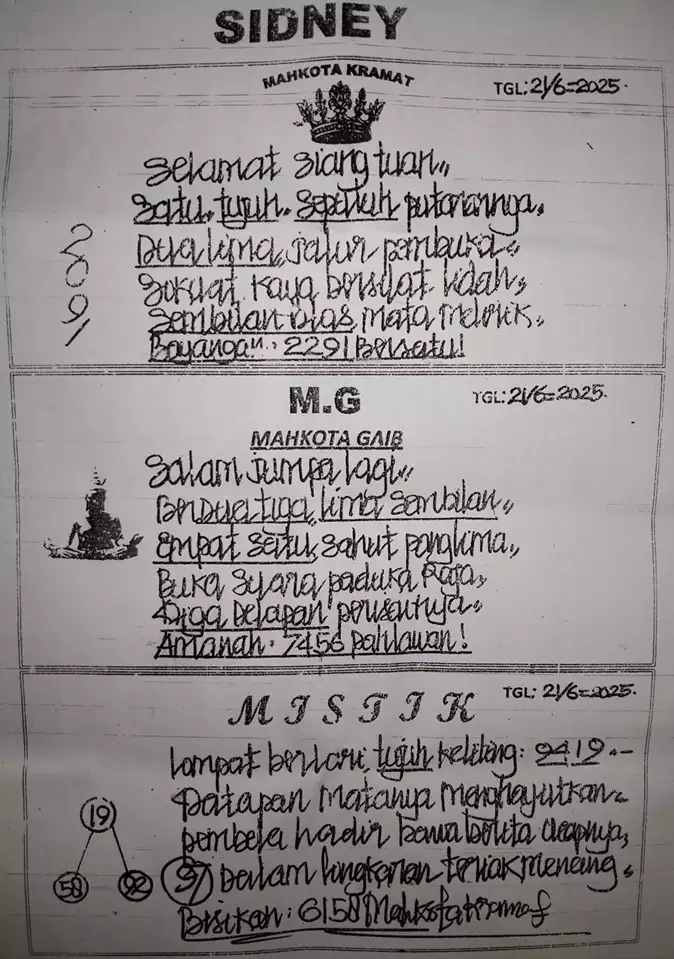 SIDNEY
MAHKOTA KRAMAT
TGL: 21/6=2025.
Selamat siang tuan,,
Satu. tujuh. Sepuluh putarannya,
Dua lima, jalur pembuka,,
Sekuat kaya bersilat lidah,,
Sembilan blas mata melirik,,
Bayangan: 2291 Bersatu!
M.G
TGL: 21/6=2025.
MAHKOTA GAIB
Salam jumpa lagi,,
Berdua tiga, lima sembilan,,
Empat satu, sahut panglima,,
Buka suara paduka Raja,,
Tiga Delapan
Amanah: 7456 pahlawan!
MISTIK
TGL: 21/6=2025.
Lompat berlari, tujuh keliling: 9419.--
Tatapan matanya menghayutkan,,
pembela hadir bawa berita ucapnya,
19
50
92
37 Dalam lingkaran teriak menang,,
Bisikan: 6158 Mahkota